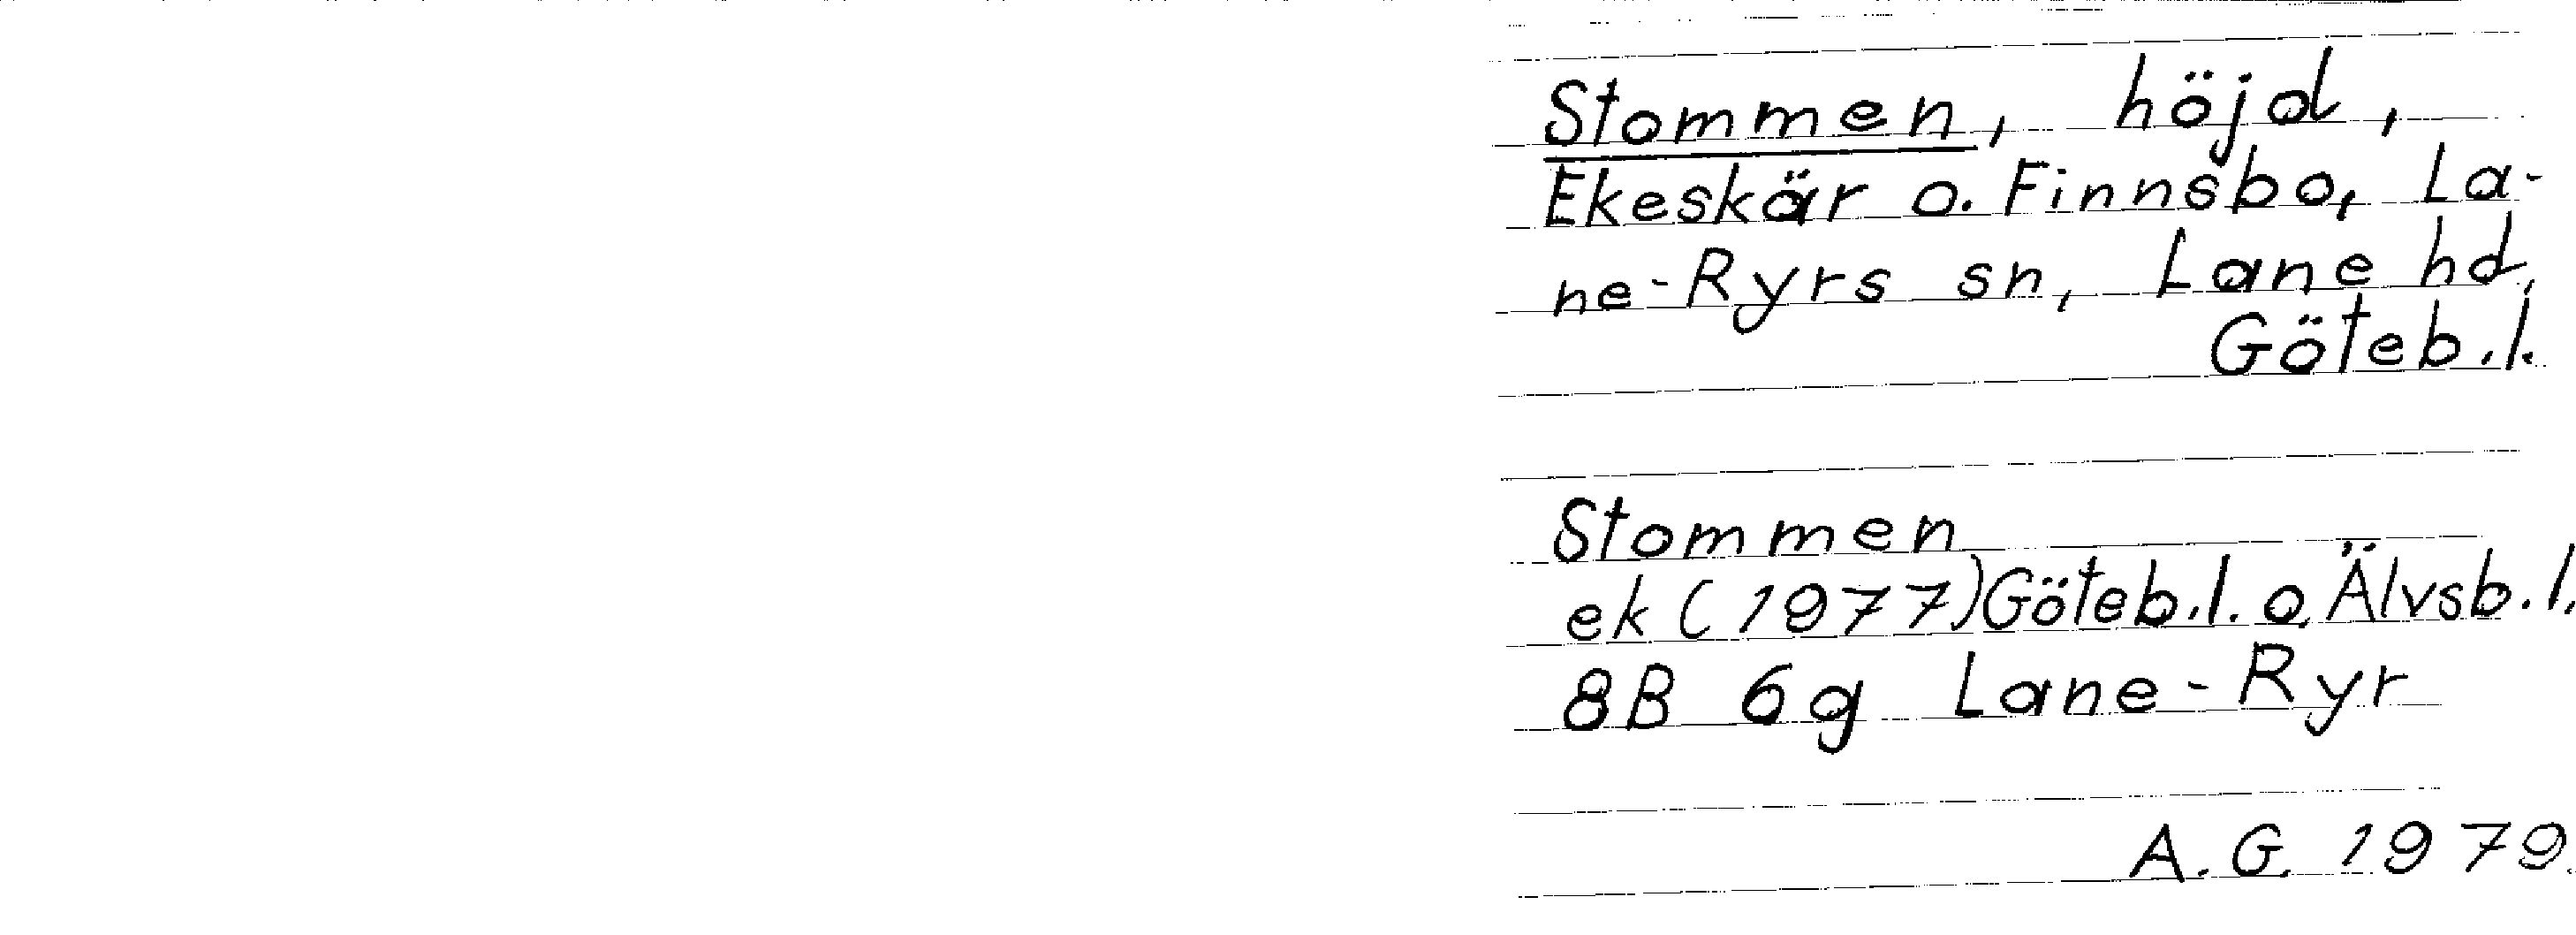 Stommen, höjd,
Ekeskär o. Finnsbo, La-
ne-Ryrs sn, Lane hd,
Göteb.l.
Stommen
ek (1977) Göteb.l. o. Älvsb.l.
8B 6g Lane-Ryr
A.G. 1979.